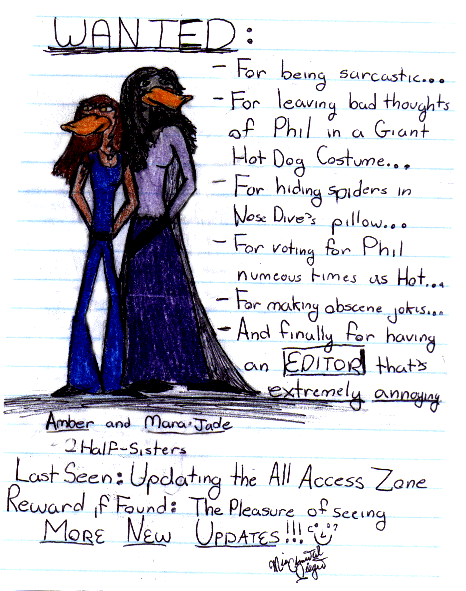 WANTED:
- For being sarcastic...
- For leaving bad thoughts
of Phil in a Giant
Hot Dog Costume...
- For hiding spiders in
Nose Dive's pillow...
- For voting for Phil
numeous times as Hot...
- For making obscene jokes...
- And finally for having
an EDITOR that's
extremely annoying
Amber and Mara-Jade
- 2 Half-Sisters
Last Seen: Updating the All Access Zone
Reward if Found: The Pleasure of seeing
MORE NEW UPDATES!!!